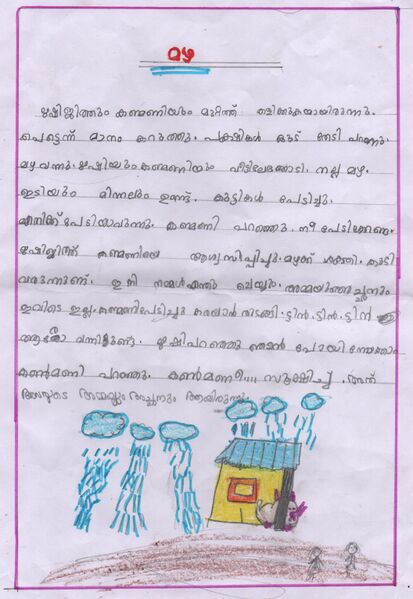 മഴ
ഋഷിജിത്തും കണ്മണിയും മുറ്റത്ത് കളിക്കുകയായിരുന്നു.
പെട്ടെന്ന് മാനം കറുത്തു. പക്ഷികൾ കൂട് തേടി പറന്നു.
മഴ വന്നു. ഋഷിയും കണ്മണിയും വീട്ടിലേക്കോടി. നല്ല മഴ.
ഇടിയും മിന്നലും ഉണ്ട്. കുട്ടികൾ പേടിച്ചു.
എനിക്ക് പേടിയാവുന്നു. കണ്മണി പറഞ്ഞു. നീ പേടിക്കണ്ട.
ഋഷിജിത്ത് കണ്മണിയെ ആശ്വസിപ്പിച്ചു. മഴക്ക് ശക്തി കൂടി
വരുന്നുണ്ട്. ഇനി നമ്മൾ എന്ത് ചെയ്യും. അമ്മയും അച്ഛനും
ഇവിടെ ഇല്ല. കണ്മണി പേടിച്ചു കരയാൻ തുടങ്ങി. ട്ടിൻ. ട്ടിൻ. ട്ടിൻ
ആരോ വന്നിട്ടുണ്ട്. ഋഷി പറഞ്ഞു ഞാൻ പോയി നോക്കാം
കൺമണി പറഞ്ഞു. കൺമണീ.... സൂക്ഷിച്ച്. അത്
അവരുടെ അമ്മയും അച്ഛനും ആയിരുന്നു.